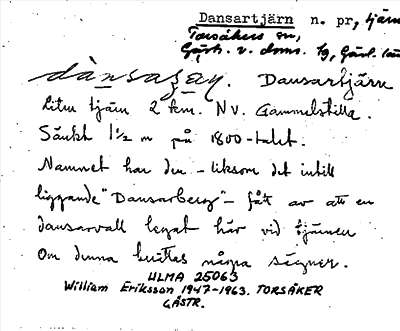 Dansartjärn n. pr, tjärn
Torsåkers sn,
Gästr. v. doms. hg, Gävl. län
dànsaṣạn. Dansartjärn
Liten tjärn 2 km. NV. Gammelstilla.
Sänkt 1½ m på 1800-talet.
Namnet har den - liksom det intill
liggande "Dansarberg" - fått av att en
dansarvall legat här vid tjärnen
Om denna berättas några sägner.
ULMA 25063
William Eriksson 1947-1963. TORSÅKER
GÄSTR.